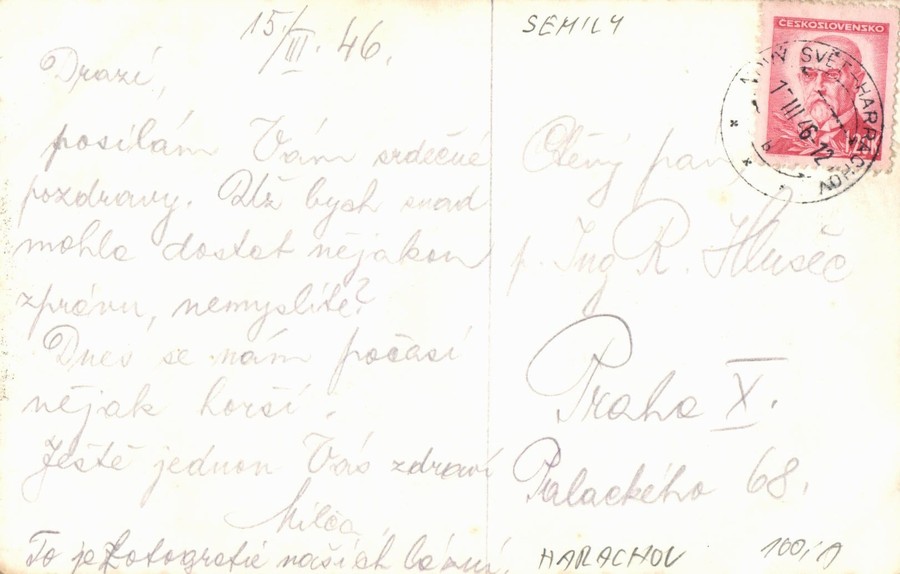 15./III. 46.
Drazí,
posílám Vám srdečné
pozdravy. Už bych snad
mohla dostat nějakou
zprávu, nemyslíte?
Dnes se nám počasí
nějak horší.
Ještě jednou Vás zdraví
Milča
To je fotografie našich
SEMILY
ČESKOSLOVENSKO
NOVÝ SVĚT-HARRACHOV
III 46-12
Ctěný pan
p. Ing R. Hlušěč
Praha X.
Palackého 68.
HARACHOV
100,-A